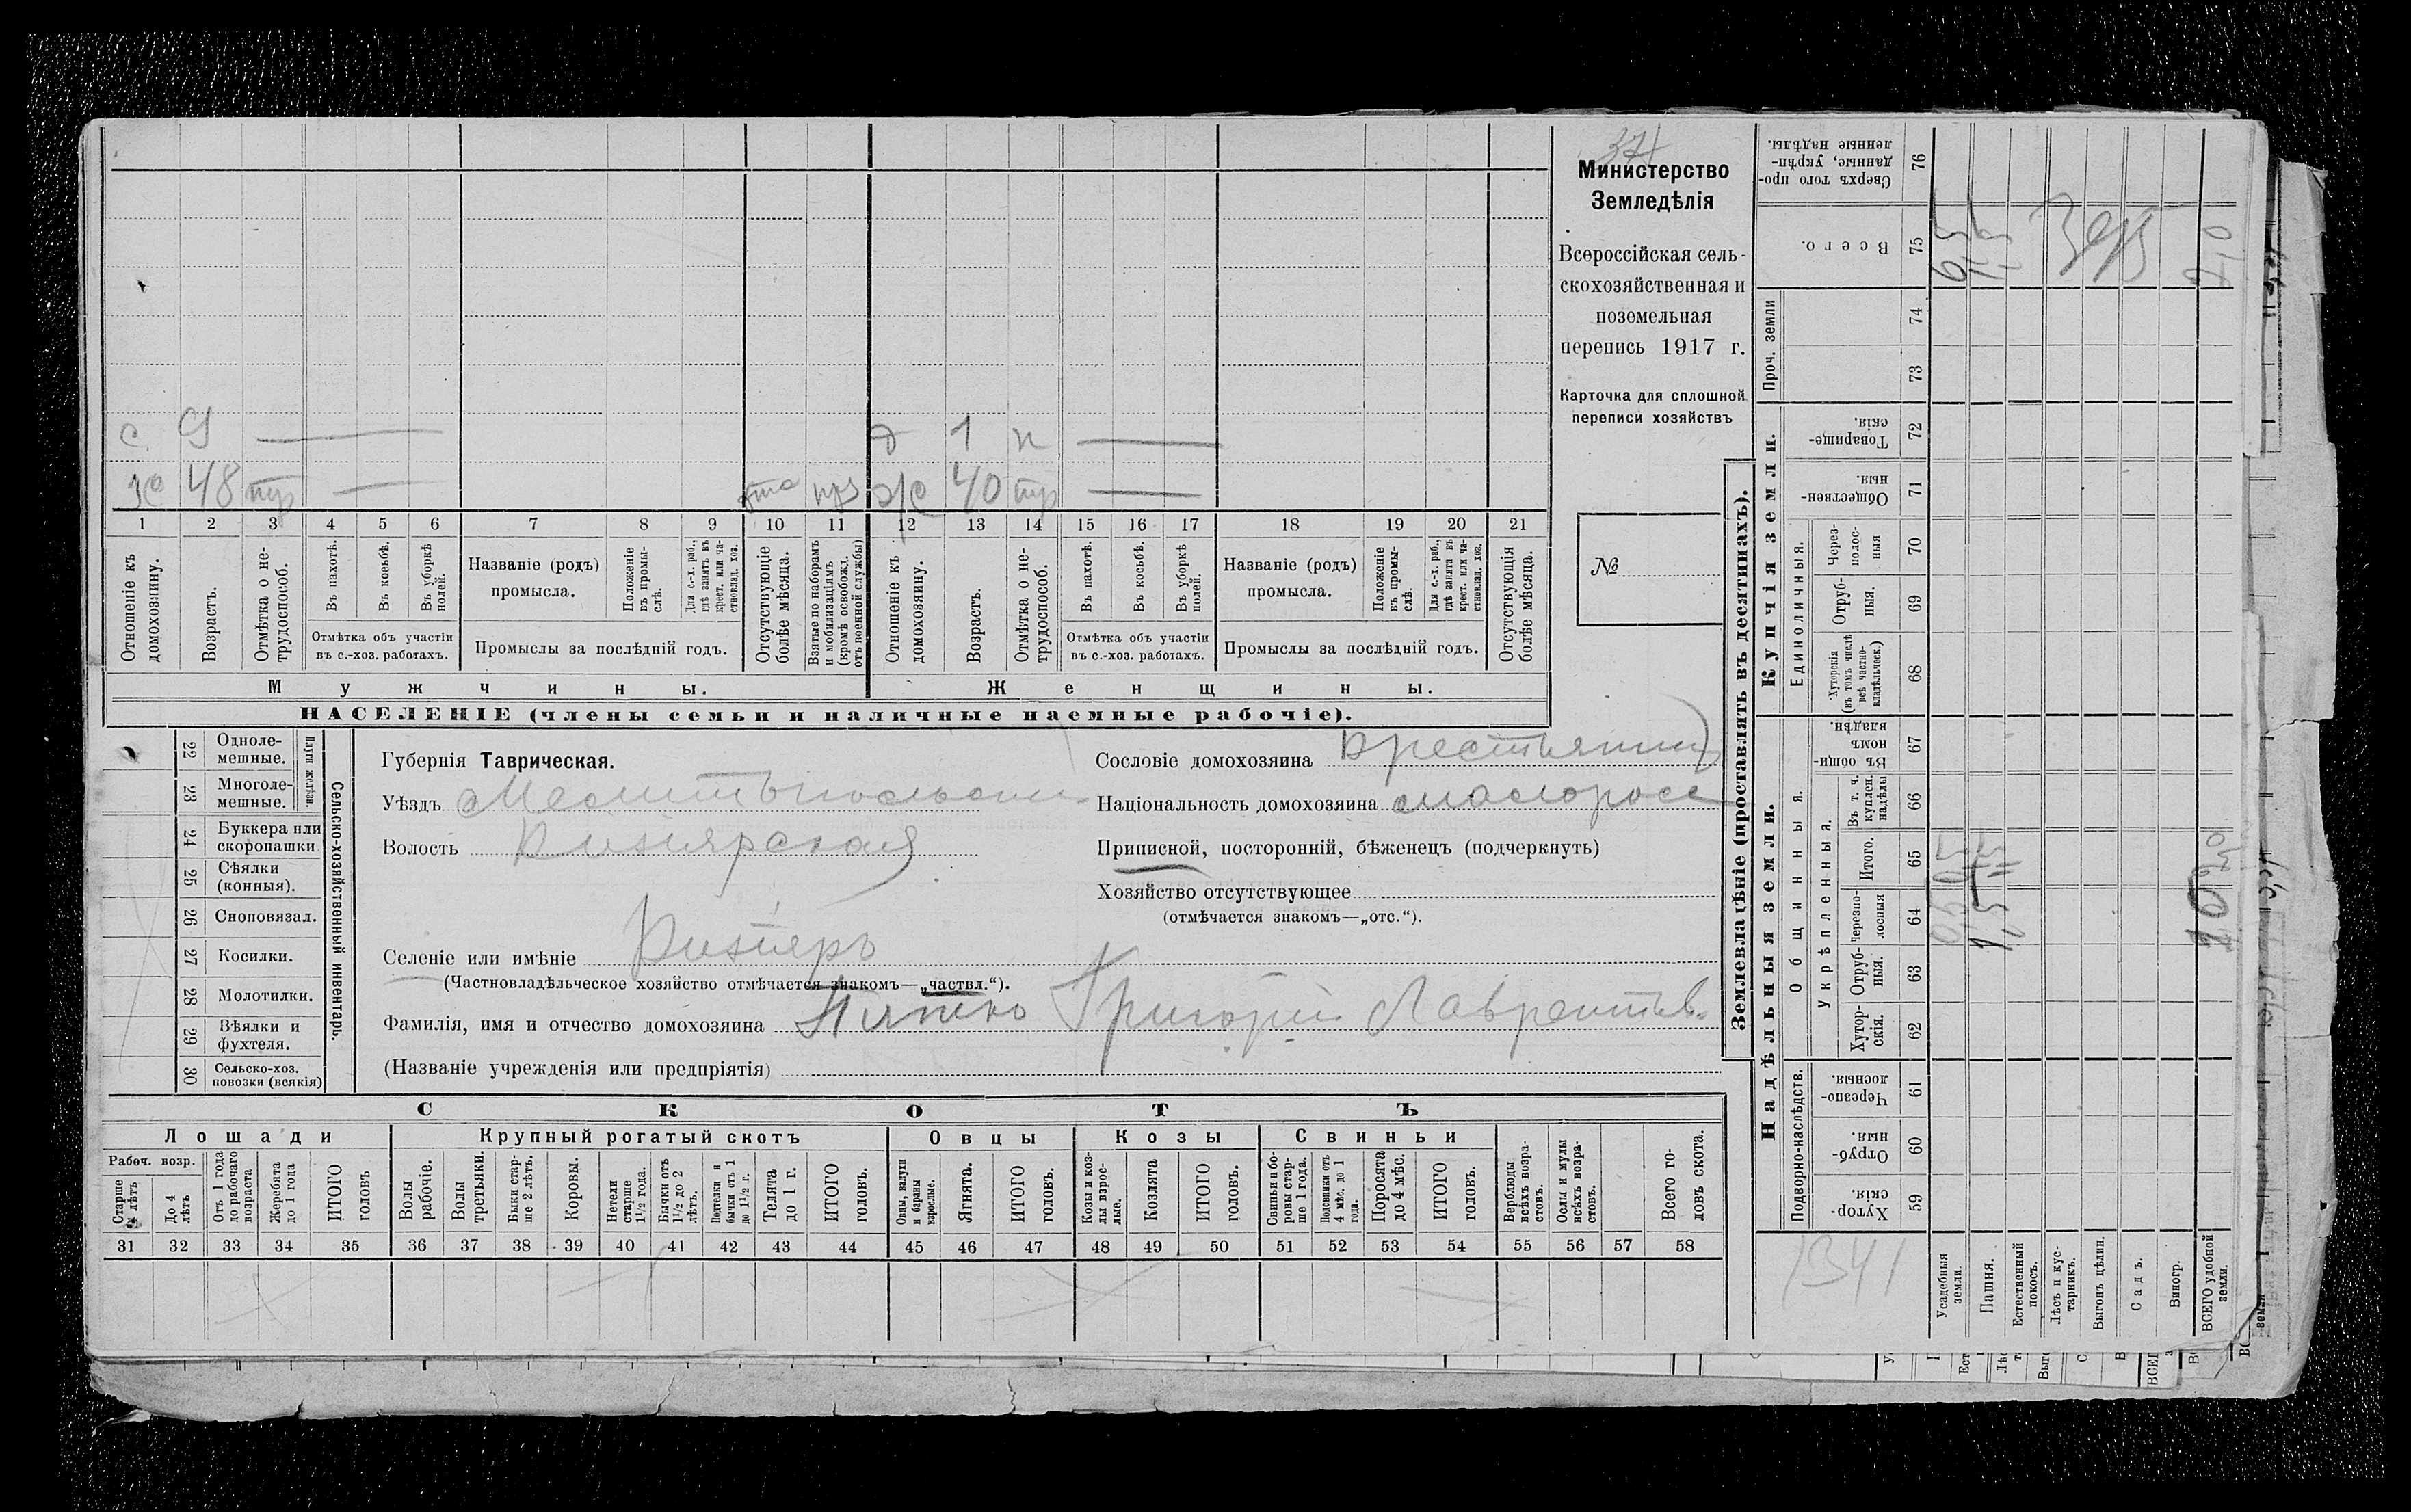 с 9 — д 1 н —
48 — 40 —
1 2 3 4 5 6 7 8 9 10 11 12 13 14 15 16 17 18 19 20 21
Отношеніе къ домохозяину.
Возрастъ.
Отмѣтка о не-трудоспособ.
Въ пахотѣ.
Въ косьбѣ.
Въ уборкѣ полей.
Отмѣтка объ участіи
въ с.-хоз. работахъ.
Названіе (родъ)
промысла.
Положеніе въ промы-слѣ.
Для с.-х. раб., гдѣ занятъ въ крест. или ча-стновлад. хоз.
Промыслы за послѣдній годъ.
Отсутствующіе болѣе мѣсяца.
Взятые по наборамъ и мобилизаціямъ (кромѣ освобожд. отъ военной службы)
Отношеніе къ домохозяину.
Возрастъ.
Отмѣтка о не-трудоспособ.
Въ пахотѣ.
Въ косьбѣ.
Въ уборкѣ полей.
Отмѣтка объ участіи
въ с.-хоз. работахъ.
Названіе (родъ)
промысла.
Положеніе въ промы-слѣ.
Для с.-х. раб., гдѣ занята въ крест. или ча-стновлад. хоз.
Промыслы за послѣдній годъ.
Отсутствующія болѣе мѣсяца.
Мужчины.
Женщины.
НАСЕЛЕНІЕ (члены семьи и наличные наемные рабочіе).
Министерство
Земледѣлія
Всероссійская сель-
скохозяйственная и
поземельная
перепись 1917 г.
Карточка для сплошной
переписи хозяйствъ
№
22 Одноле-мешные.
23 Многоле-мешные.
Плуги желѣзн.
24 Буккера или скоропашки
25 Сѣялки (конныя).
26 Сноповязал.
27 Косилки.
28 Молотилки.
29 Вѣялки и фухтеля.
30 Сельско-хоз. повозки (всякія)
Сельско-хозяйственный инвентарь.
Губернія Таврическая.
Уѣздъ Мелитопольскій
Волость Кизіярская
Селеніе или имѣніе Кизіяръ
(Частновладѣльческое хозяйство отмѣчается знакомъ—„частвл.“).
Фамилія, имя и отчество домохозяина Григорій Лаврентьев.
(Названіе учрежденія или предпріятія)
Сословіе домохозяина Крестьянин
Національность домохозяина малоросс
Приписной, посторонній, бѣженецъ (подчеркнуть)
Хозяйство отсутствующее
(отмѣчается знакомъ—„отс.“).
СКОТЪ
Лошади
Крупный рогатый скотъ
Овцы
Козы
Свиньи
Рабоч. возр.
Старше 4 лѣтъ
До 4 лѣтъ
Отъ 1 года до рабочаго возраста
Жеребята до 1 года
ИТОГО головъ
Волы рабочіе.
Волы третьяки.
Быки стар-ше 2 лѣтъ.
Коровы.
Нетели старше 1½ года.
Бычки отъ 1½ до 2 лѣтъ.
Подтелки и бычки отъ 1 до 1½ г.
Телята до 1 г.
ИТОГО головъ.
Овцы, валухи и бараны взрослые.
Ягнята.
ИТОГО головъ.
Козы и коз-лы взрос-лые.
Козлята
ИТОГО головъ.
Свиньи и бо-ровы стар-ше 1 года.
Подсвинки отъ 4 мѣс. до 1 года.
Поросята до 4 мѣс.
ИТОГО головъ.
Верблюды всѣхъ возра-стовъ.
Ослы и мулы всѣхъ возра-стовъ.
Всего го-ловъ скота.
31 32 33 34 35 36 37 38 39 40 41 42 43 44 45 46 47 48 49 50 51 52 53 54 55 56 57 58
Землевладѣніе (проставлять въ десятинахъ).
Купчія земли.
Надѣльныя земли.
Проч. земли
Единоличныя.
Общинныя.
Укрѣпленныя.
Подворно-наслѣдств.
Сверхъ того про-данные, укрѣп-ленные надѣлы. 76
Всего. 75
74
73
Товарище-скія. 72
Обществен-ныя. 71
Через-полос-ныя 70
Отруб-ныя. 69
Хуторскія (въ томъ числѣ всѣ частно-владѣльческ.) 68
Въ общин-номъ владѣн. 67
Въ т. ч. куплен. надѣлы 66
Итого. 65
Черезпо-лосныя 64
Отруб-ныя. 63
Хутор-скія. 62
Черезпо-лосныя. 61
Отруб-ныя. 60
Хутор-скія. 59
1341
Усадебныя земли.
Пашня.
Естественный покосъ.
Лѣсъ и кус-тарникъ.
Выгонъ цѣлин.
Садъ.
Виногр.
ВСЕГО удобной земли.